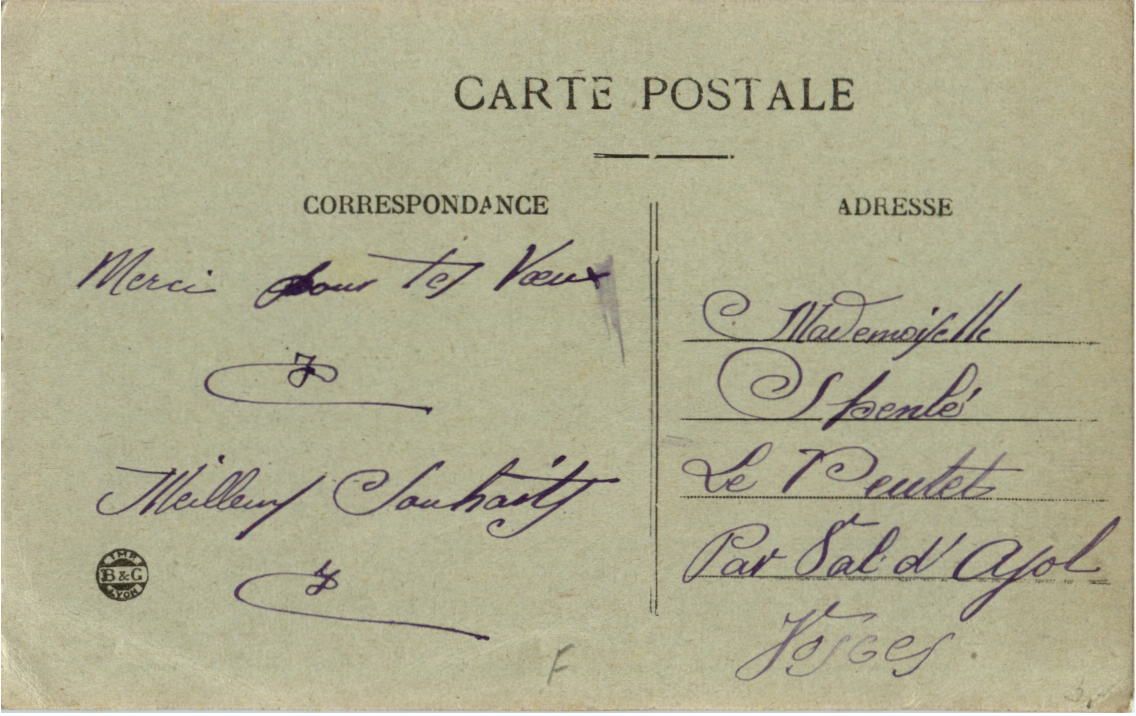 CARTE POSTALE
CORRESPONDANCE
Merci pour tes Vœux
Meilleurs Souhaits
IMP. B & G LYON
F
ADRESSE
Mademoiselle
Spenlé
Le Peutet
Par Val d'Ajol
Vosges